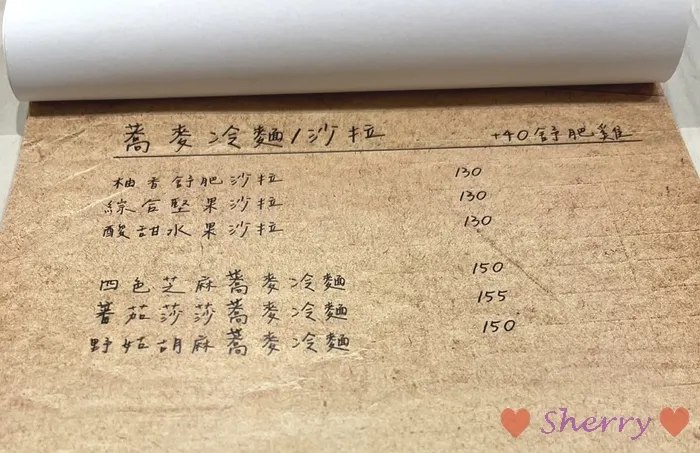 蕎麥冷麵/沙拉 +40舒肥雞
柚香舒肥沙拉 130
綜合堅果沙拉 130
酸甜水果沙拉 130
四色芝麻蕎麥冷麵 150
蕃茄莎莎蕎麥冷麵 155
野菇胡麻蕎麥冷麵 150
Sherry